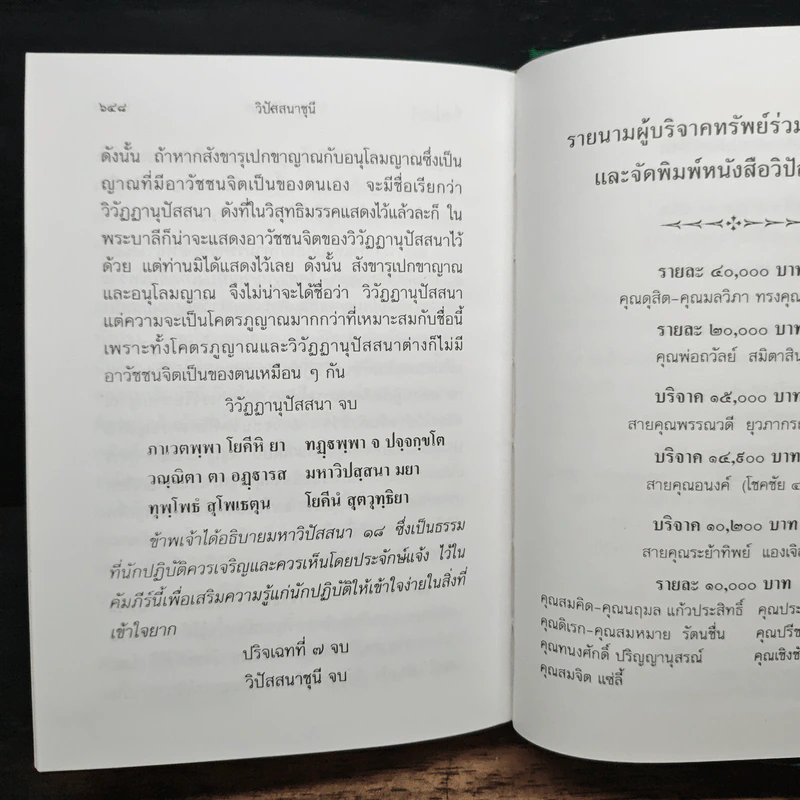 ๖๔๘
วิปัสสนาชุนี
ดังนั้น ถ้าหากสังขารุเปกขาญาณกับอนุโลมญาณซึ่งเป็น
ญาณที่มีอาวัชชนจิตเป็นของตนเอง จะมีชื่อเรียกว่า
วิวัฏฏานุปัสสนา ดังที่ในวิสุทธิมรรคแสดงไว้แล้วละก็ ใน
พระบาลีก็น่าจะแสดงอาวัชชนจิตของวิวัฏฏานุปัสสนาไว้
ด้วย แต่ท่านมิได้แสดงไว้เลย ดังนั้น สังขารุเปกขาญาณ
และอนุโลมญาณ จึงไม่น่าจะได้ชื่อว่า วิวัฏฏานุปัสสนา
แต่ความจะเป็นโคตรภูญาณมากกว่าที่เหมาะสมกับชื่อนี้
เพราะทั้งโคตรภูญาณและวิวัฏฏานุปัสสนาต่างก็ไม่มี
อาวัชชนจิตเป็นของตนเหมือน ๆ กัน
วิวัฏฏานุปัสสนา จบ
ภาเวตพฺพา โยคีหิ ยา ทฏฺฐพฺพา จ ปจฺจกฺขโต
วณฺณิตา ตา อฏฺฐารส มหาวิปสฺสนา มยา
ทุพฺโพธํ สุโพเธตุน โยคีนํ สุตวุทฺธิยา
ข้าพเจ้าได้อธิบายมหาวิปัสสนา ๑๘ ซึ่งเป็นธรรม
ที่นักปฏิบัติควรเจริญและควรเห็นโดยประจักษ์แจ้ง ไว้ใน
คัมภีร์นี้เพื่อเสริมความรู้แก่นักปฏิบัติให้เข้าใจง่ายในสิ่งที่
เข้าใจยาก
ปริจเฉทที่ ๗ จบ
วิปัสสนาชุนี จบ
รายนามผู้บริจาคทรัพย์ร่วม
และจัดพิมพ์หนังสือวิปัส
รายละ ๔๐,๐๐๐ บาท
คุณดุสิต-คุณมลวิภา ทรงคุณ
รายละ ๒๐,๐๐๐ บาท
คุณพ่อถวัลย์ สมิตาสิน
บริจาค ๑๕,๐๐๐ บาท
สายคุณพรรณวดี ยุวภากร
บริจาค ๑๔,๙๐๐ บาท
สายคุณอนงค์ (โชคชัย ๔
บริจาค ๑๐,๒๐๐ บาท
สายคุณระย้าทิพย์ แองเจิล
รายละ ๑๐,๐๐๐ บาท
คุณสมคิด-คุณนฤมล แก้วประสิทธิ์ คุณประ
คุณดิเรก-คุณสมหมาย รัตนชื่น คุณปรีช
คุณทนงศักดิ์ ปริญญานุสรณ์ คุณเชิงชั
คุณสมจิต แซ่ลี้